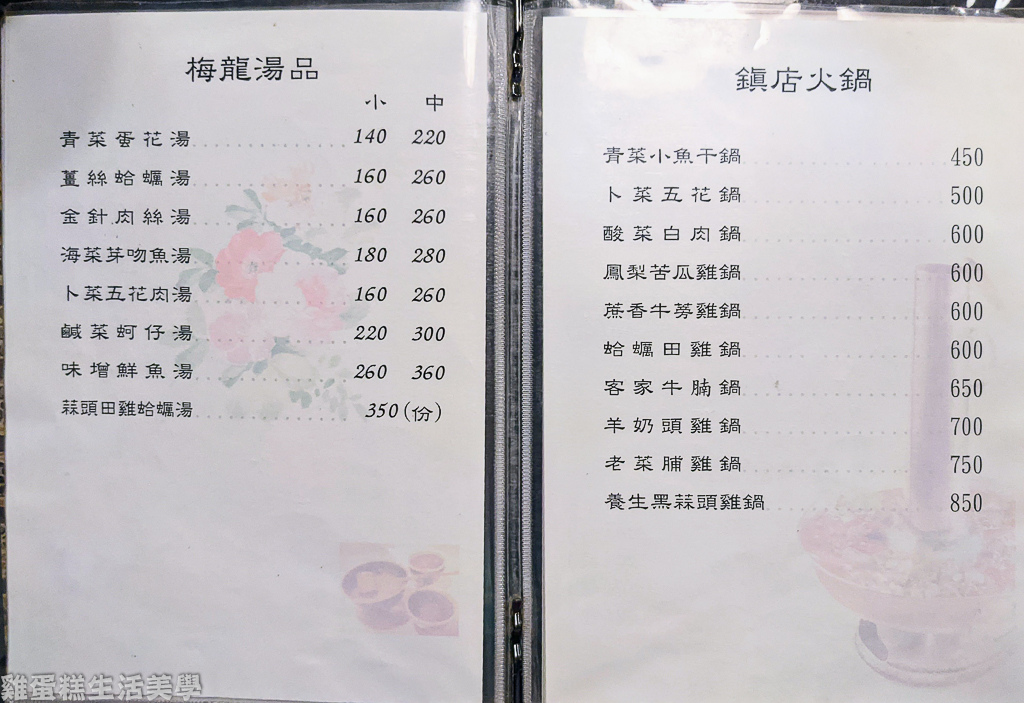 梅龍湯品
小 中
青菜蛋花湯 140 220
薑絲蛤蠣湯 160 260
金針肉絲湯 160 260
海菜芽吻魚湯 180 280
卜菜五花肉湯 160 260
鹹菜蚵仔湯 220 300
味增鮮魚湯 260 360
蒜頭田雞蛤蠣湯 350(份)
鎮店火鍋
青菜小魚干鍋 450
卜菜五花鍋 500
酸菜白肉鍋 600
鳳梨苦瓜雞鍋 600
蔗香牛蒡雞鍋 600
蛤蠣田雞鍋 600
客家牛腩鍋 650
羊奶頭雞鍋 700
老菜脯雞鍋 750
養生黑蒜頭雞鍋 850
雞蛋糕生活美學